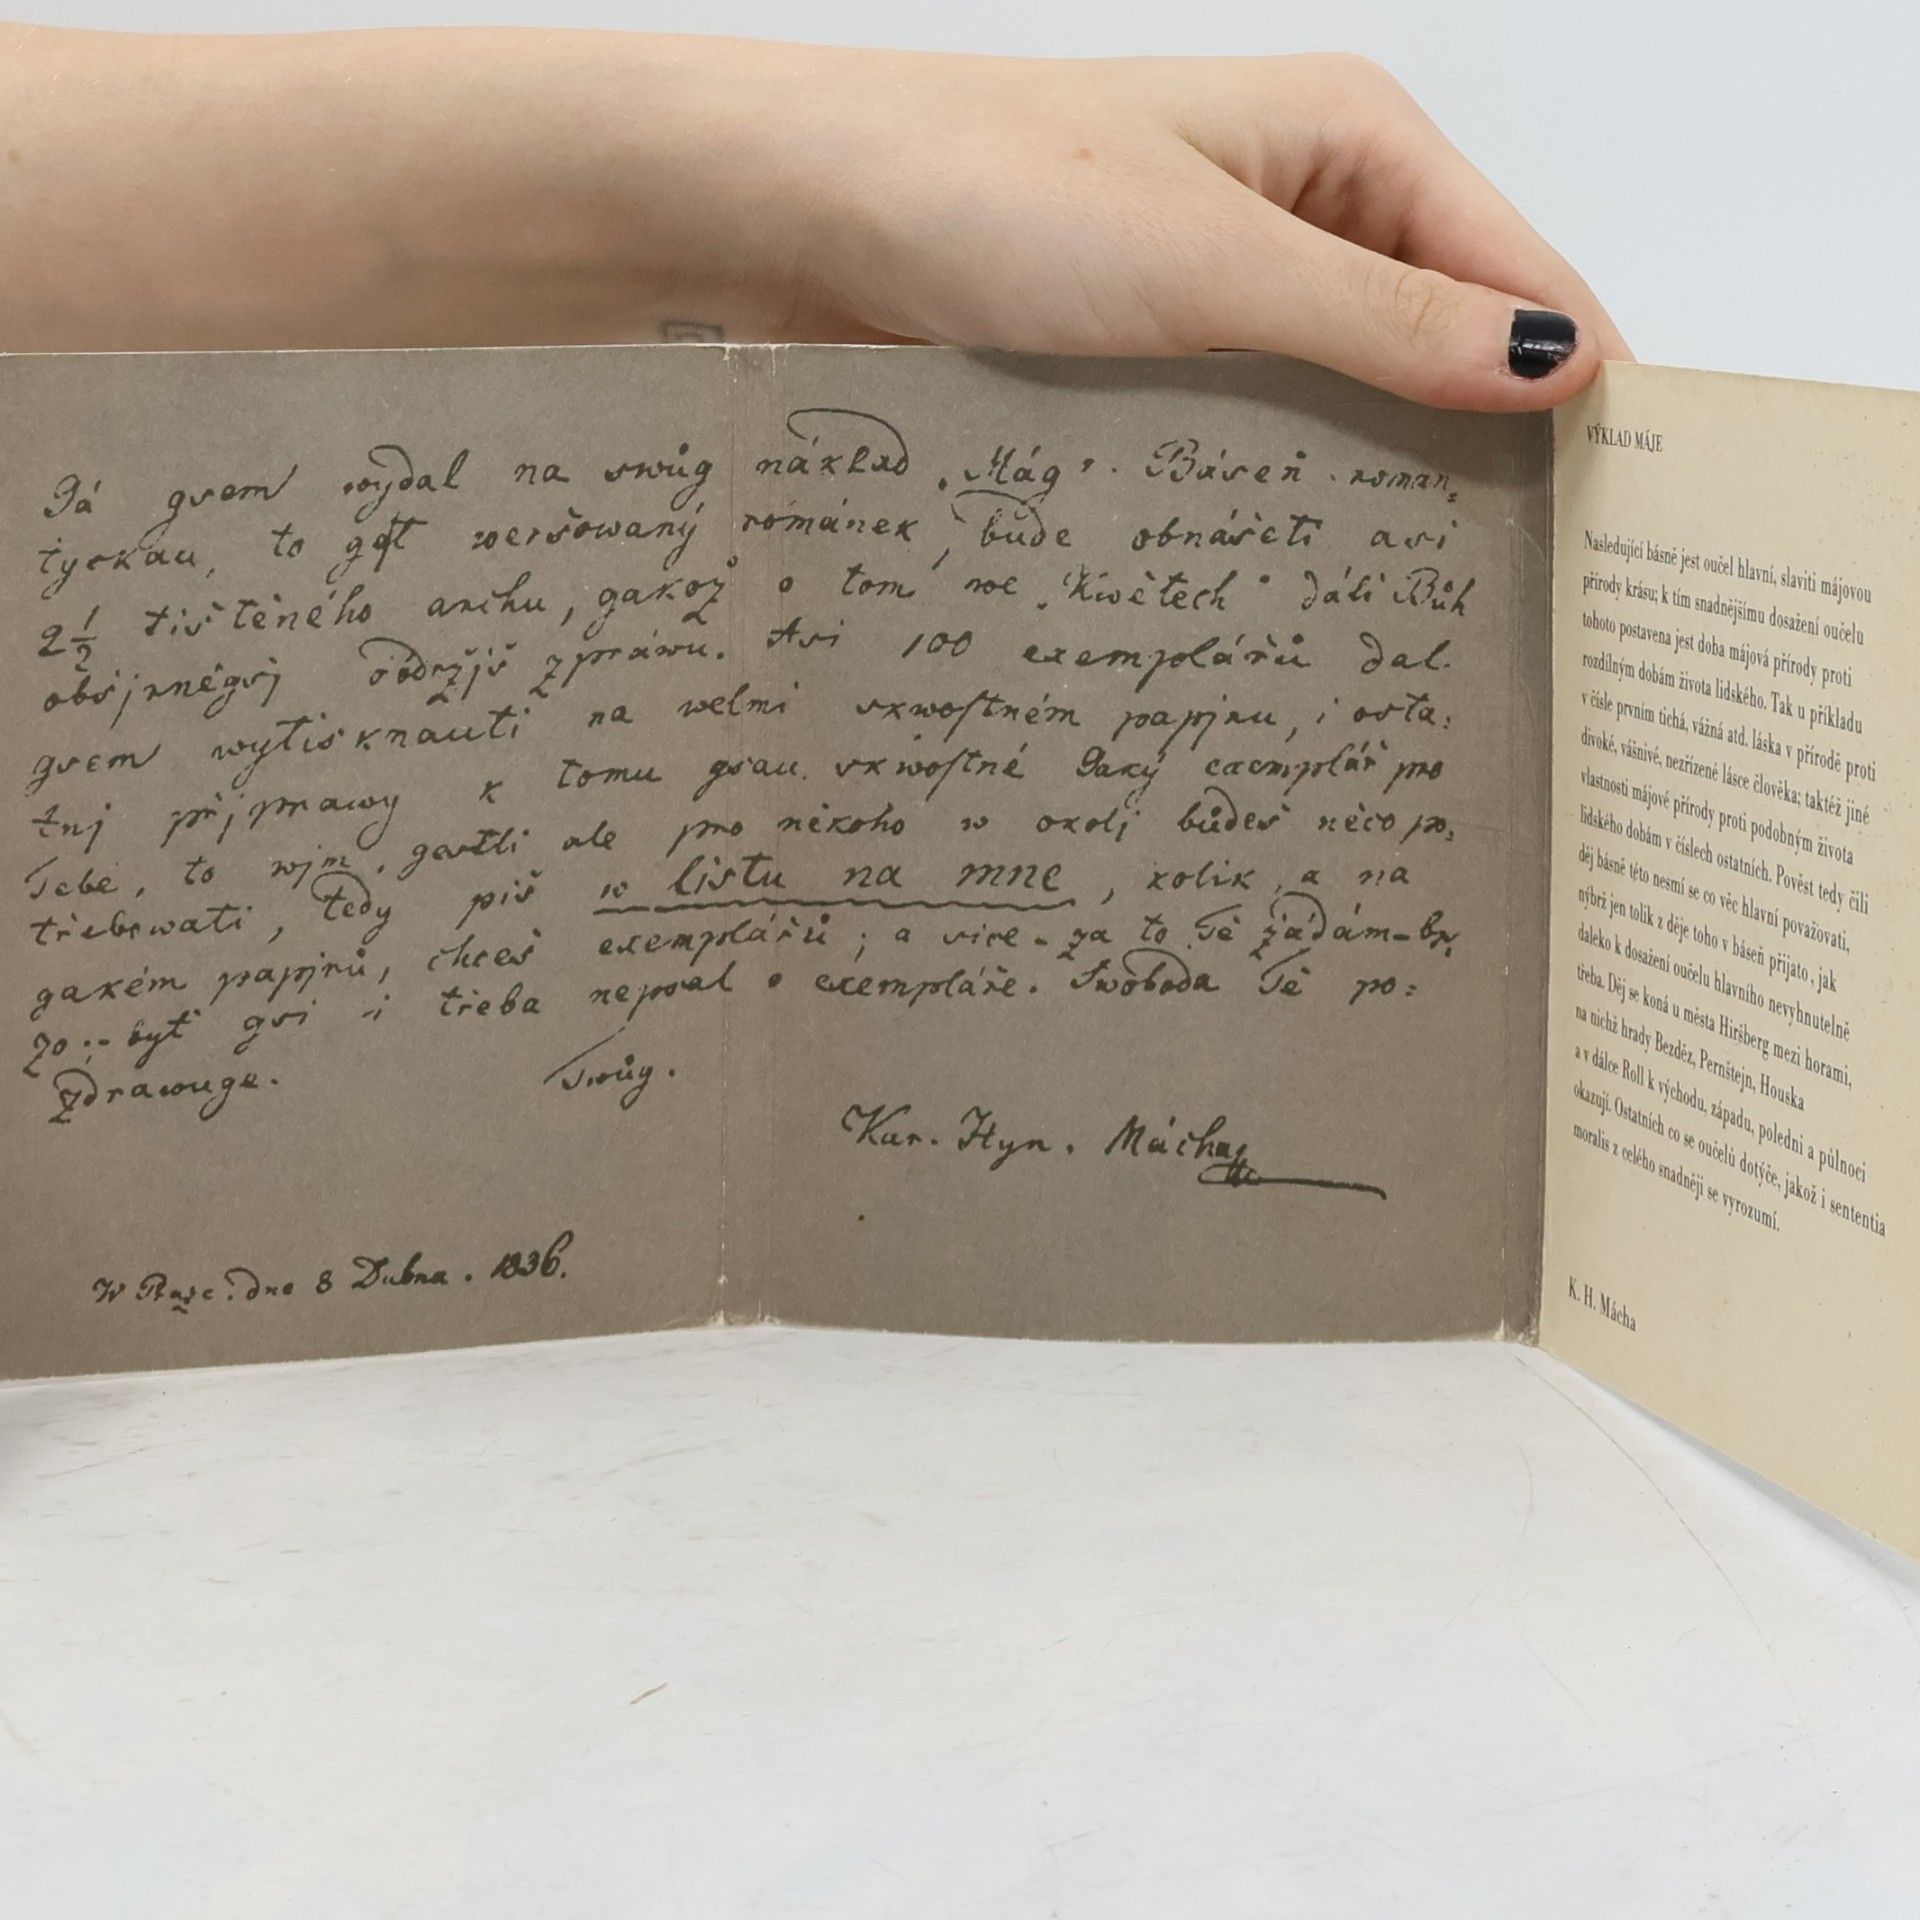 Já gsem wydal na swůg náklad „Mág“. Báseň roman=
tyckau, to gest weršowaný románek, bude obnášeti asi
2 1/2 tištěného archu, gakož o tom we „Kwětech“ dáli Bůh
obšjrněgšj obdržjš zpráwu. Asi 100 exemplářů dal
gsem wytisknauti na welmi skwostném papjru, i osta=
tnj přjprawy k tomu gsau skwostné Gaký exemplář pro
Tebe, to wjm, gestli ale pro někoho w okolj budeš něco po=
třebowati, tedy piš w listu na mne, kolik, a na
gakém papjrů, chceš exemplářů; a sice – za to Tě žádám – br=
zo :– byť gsi i třeba nepsal o exempláře. Swoboda Tě po=
zdrawuge. Twůg.
Kar. Hyn. Mácha
W Praze. dne 8 Dubna. 1836.
VÝKLAD MÁJE
Následující básně jest oučel hlavní, slaviti májovou
přírody krásu; k tím snadnějšímu dosažení oučelu
tohoto postavena jest doba májová přírody proti
rozdílným dobám života lidského. Tak u příkladu
v čísle prvním tichá, vážná atd. láska v přírodě proti
divoké, vášnivé, nezřízené lásce člověka; taktéž jiné
vlastnosti májové přírody proti podobným života
lidského dobám v číslech ostatních. Pověst tedy čili
děj básně této nesmí se co věc hlavní považovati,
nýbrž jen tolik z děje toho v báseň přijato, jak
daleko k dosažení oučelu hlavního nevyhnutelně
třeba. Děj se koná u města Hiršberg mezi horami,
na nichž hrady Bezděz, Pernštejn, Houska
a v dálce Roll k východu, západu, poledni a půlnoci
okazují. Ostatních co se oučelů dotýče, jakož i sententia
moralis z celého snadněji se vyrozumí.
K. H. Mácha